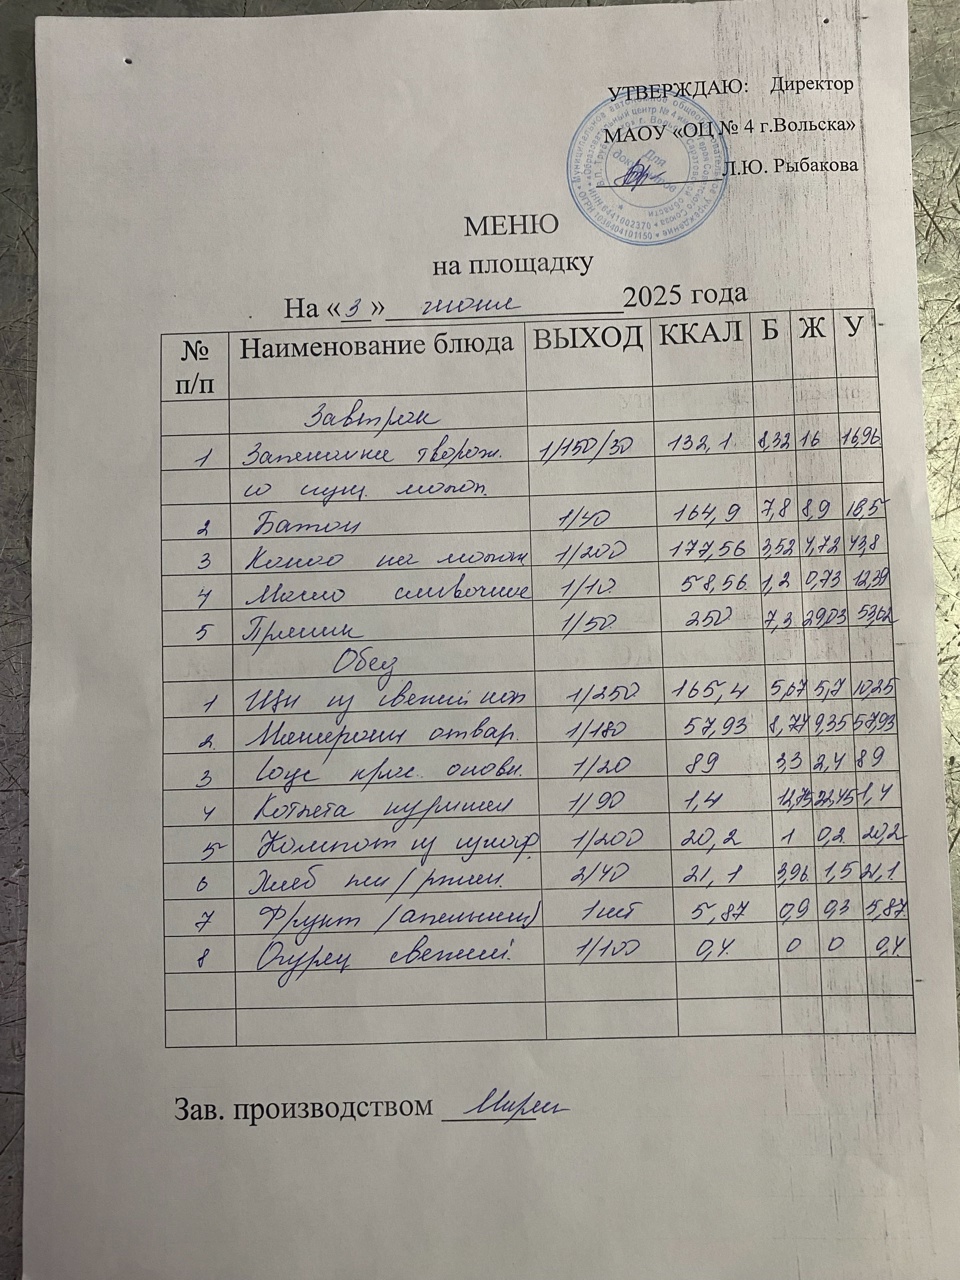 УТВЕРЖДАЮ: Директор
МАОУ «ОЦ № 4 г.Вольска»
Л.Ю. Рыбакова
Для документов
МЕНЮ
на площадку
На «3» июня 2025 года
№ п/п Наименование блюда ВЫХОД ККАЛ Б Ж У
Завтрак
1 Запеканка творож. 1/150/30 132,1 8,32 16 16,96
со сгущ. молок.
2 Батон 1/40 164,9 7,8 8,9 18,5
3 Какао на молок 1/200 177,56 3,52 4,72 43,8
4 Масло сливочное 1/10 58,56 1,2 0,73 12,39
5 Пряник 1/50 250 7,3 29,03 53,62
Обед
1 Щи из свежей кап 1/250 165,4 5,67 5,7 10,25
2 Макароны отвар. 1/180 57,93 8,74 9,35 57,93
3 Соус крас. основн. 1/20 89 3,3 2,4 89
4 Котлета куриная 1/90 1,4 12,75 22,45 1,4
5 Компот из сухоф. 1/200 20,2 1 0,2 20,2
6 Хлеб пш/ржан. 2/40 21,1 3,96 1,5 21,1
7 Фрукт (апельсин) 1шт 5,87 0,9 0,3 5,87
8 Огурец свежий 1/100 0,4 0 0 0,4
Зав. производством